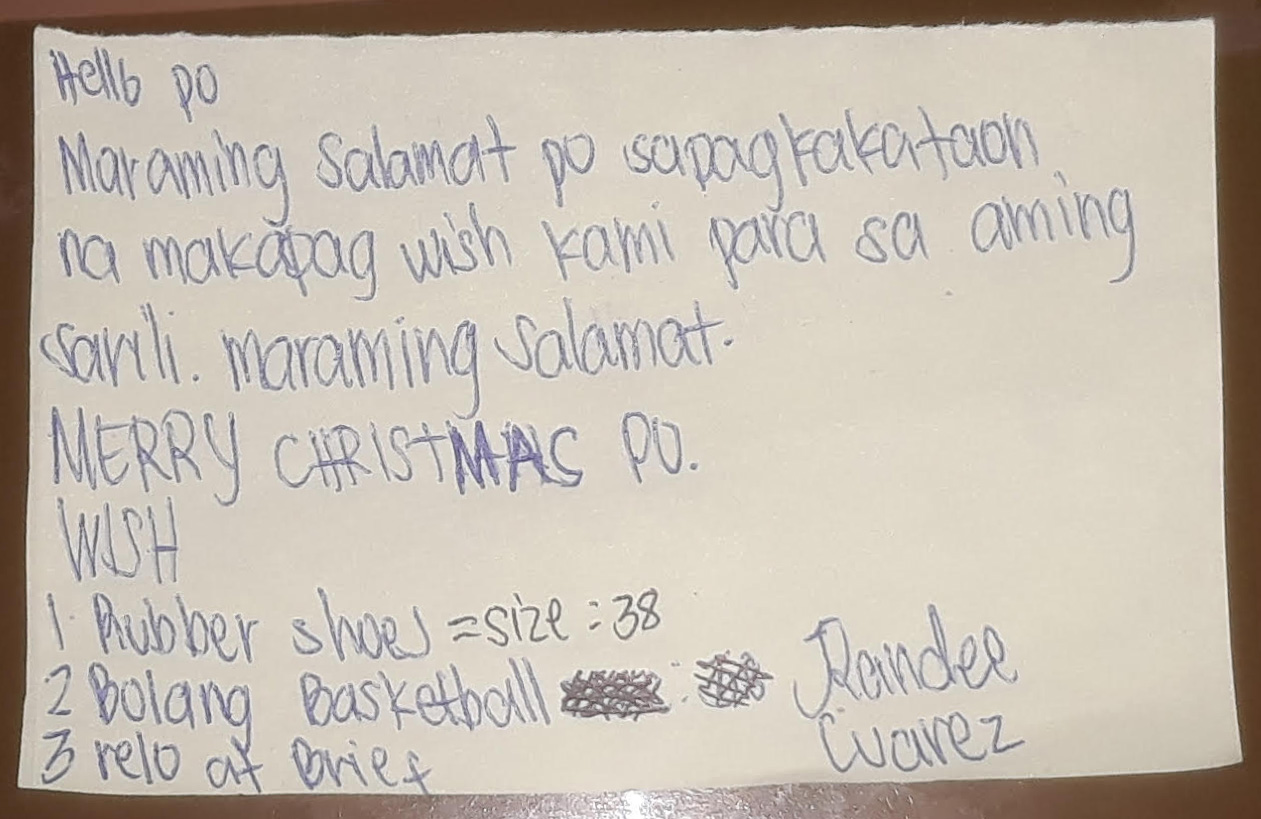 Hello po
Maraming Salamat po sapagkakataon
na makapag wish kami para sa aming
sarili. maraming salamat.
MERRY CHRISTMAS PO.
WISH
1. Rubber shoes = size : 38
2 Bolang Basketball :
3 relo at Brief
Randee